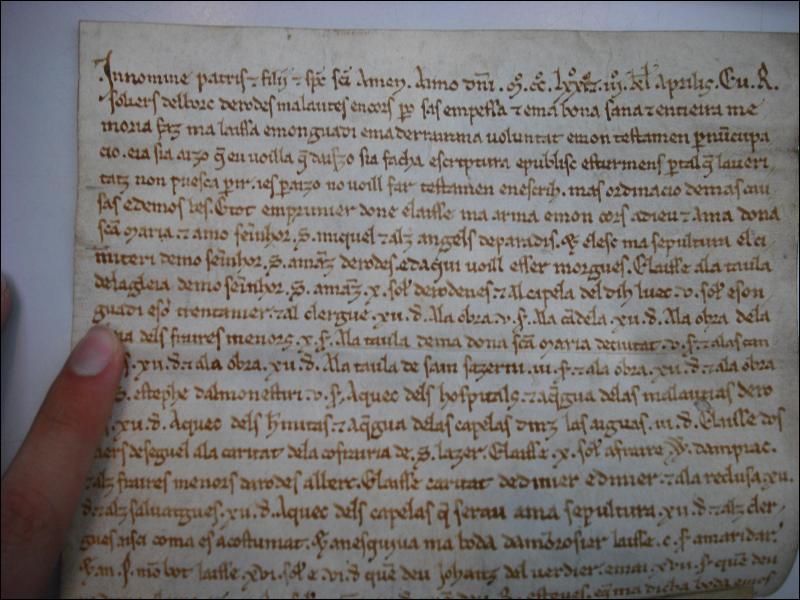 In nomine patris ⁊ filii ⁊ sp̄c sc̄i Amen. Anno dn̄i. M. CC. Lxx. iij. kl̄ Aprilis. Eu. R.
soliers del borc de rodes malautes en cors per sas empessa ⁊ em a bona sana ⁊ entieira me
moria faz ma laissa e mon guadi e ma derraiana voluntat e mon testamen p nūcupa
cio. eia sia aizo q̄ eu voilla q̄ daiszo sia facha escriptura e publisc esturmens p tal q̄ la veri
tatz non puesca pir. ies p aizo no voill far testamen en escrih. mas ordinacio de mas cau
sas e de mos bes. E tot em primier done e laisse ma arma e mon cors a dieu ⁊ a ma dona
sc̄a maria. ⁊ a mo senhor. S. miquel ⁊ alz angels de paradis. E elesc ma sepultura el ci
miteri de mo senhor. S. amaz de rodes. e daqui voill esser morgues. E laisse a la taula
de la gleia de mo senhor. S. amaz. x. sol. de rodenes. ⁊ al capela del dih luec. v. sol. e son
guadi e so trentanier. ⁊ al clergue. xii. d. A la obra. v. s. A la cādela. xii. d. A la obra de la
dels fraires menors. x. s. A la taula de ma dona sc̄a maria de ciutat. v. s. ⁊ a las can
xii. d. ⁊ a la obra. xii. d. A la taula de sain iii. s. ⁊ a la obra. xii. d. ⁊ a la obra
S. estephe dal monestiri. v. s. A quec dels hospitals. ⁊ a q̄guа de las malautias de ro
xii. d. A quec dels h̄mitas. ⁊ a q̄gua de las capelas dintz las aiguas. iii. d. E laisse dos
iers de seguel a la caritat de la cofrairia de. S. lazer. E laisse. x. sol. a fraire W. dampiac.
⁊ alz fraires menors de rodes E laisse caritat de dinier e dinier. ⁊ a la reclusa. xii.
d. ⁊ alz salvatgues. xii. d. A quec dels capelas q̄ serau a ma sepultura. xii. d. ⁊ alz cler
gues. aisi coma es acostumat. E a nesquiva ma boda laisse. c. s. a maridar.
E an laisse. xvi. sol. e. vi. d. que deu Johanz del verdier. e mai. xvii. s. que deu
R. esteves. ma dicha boda